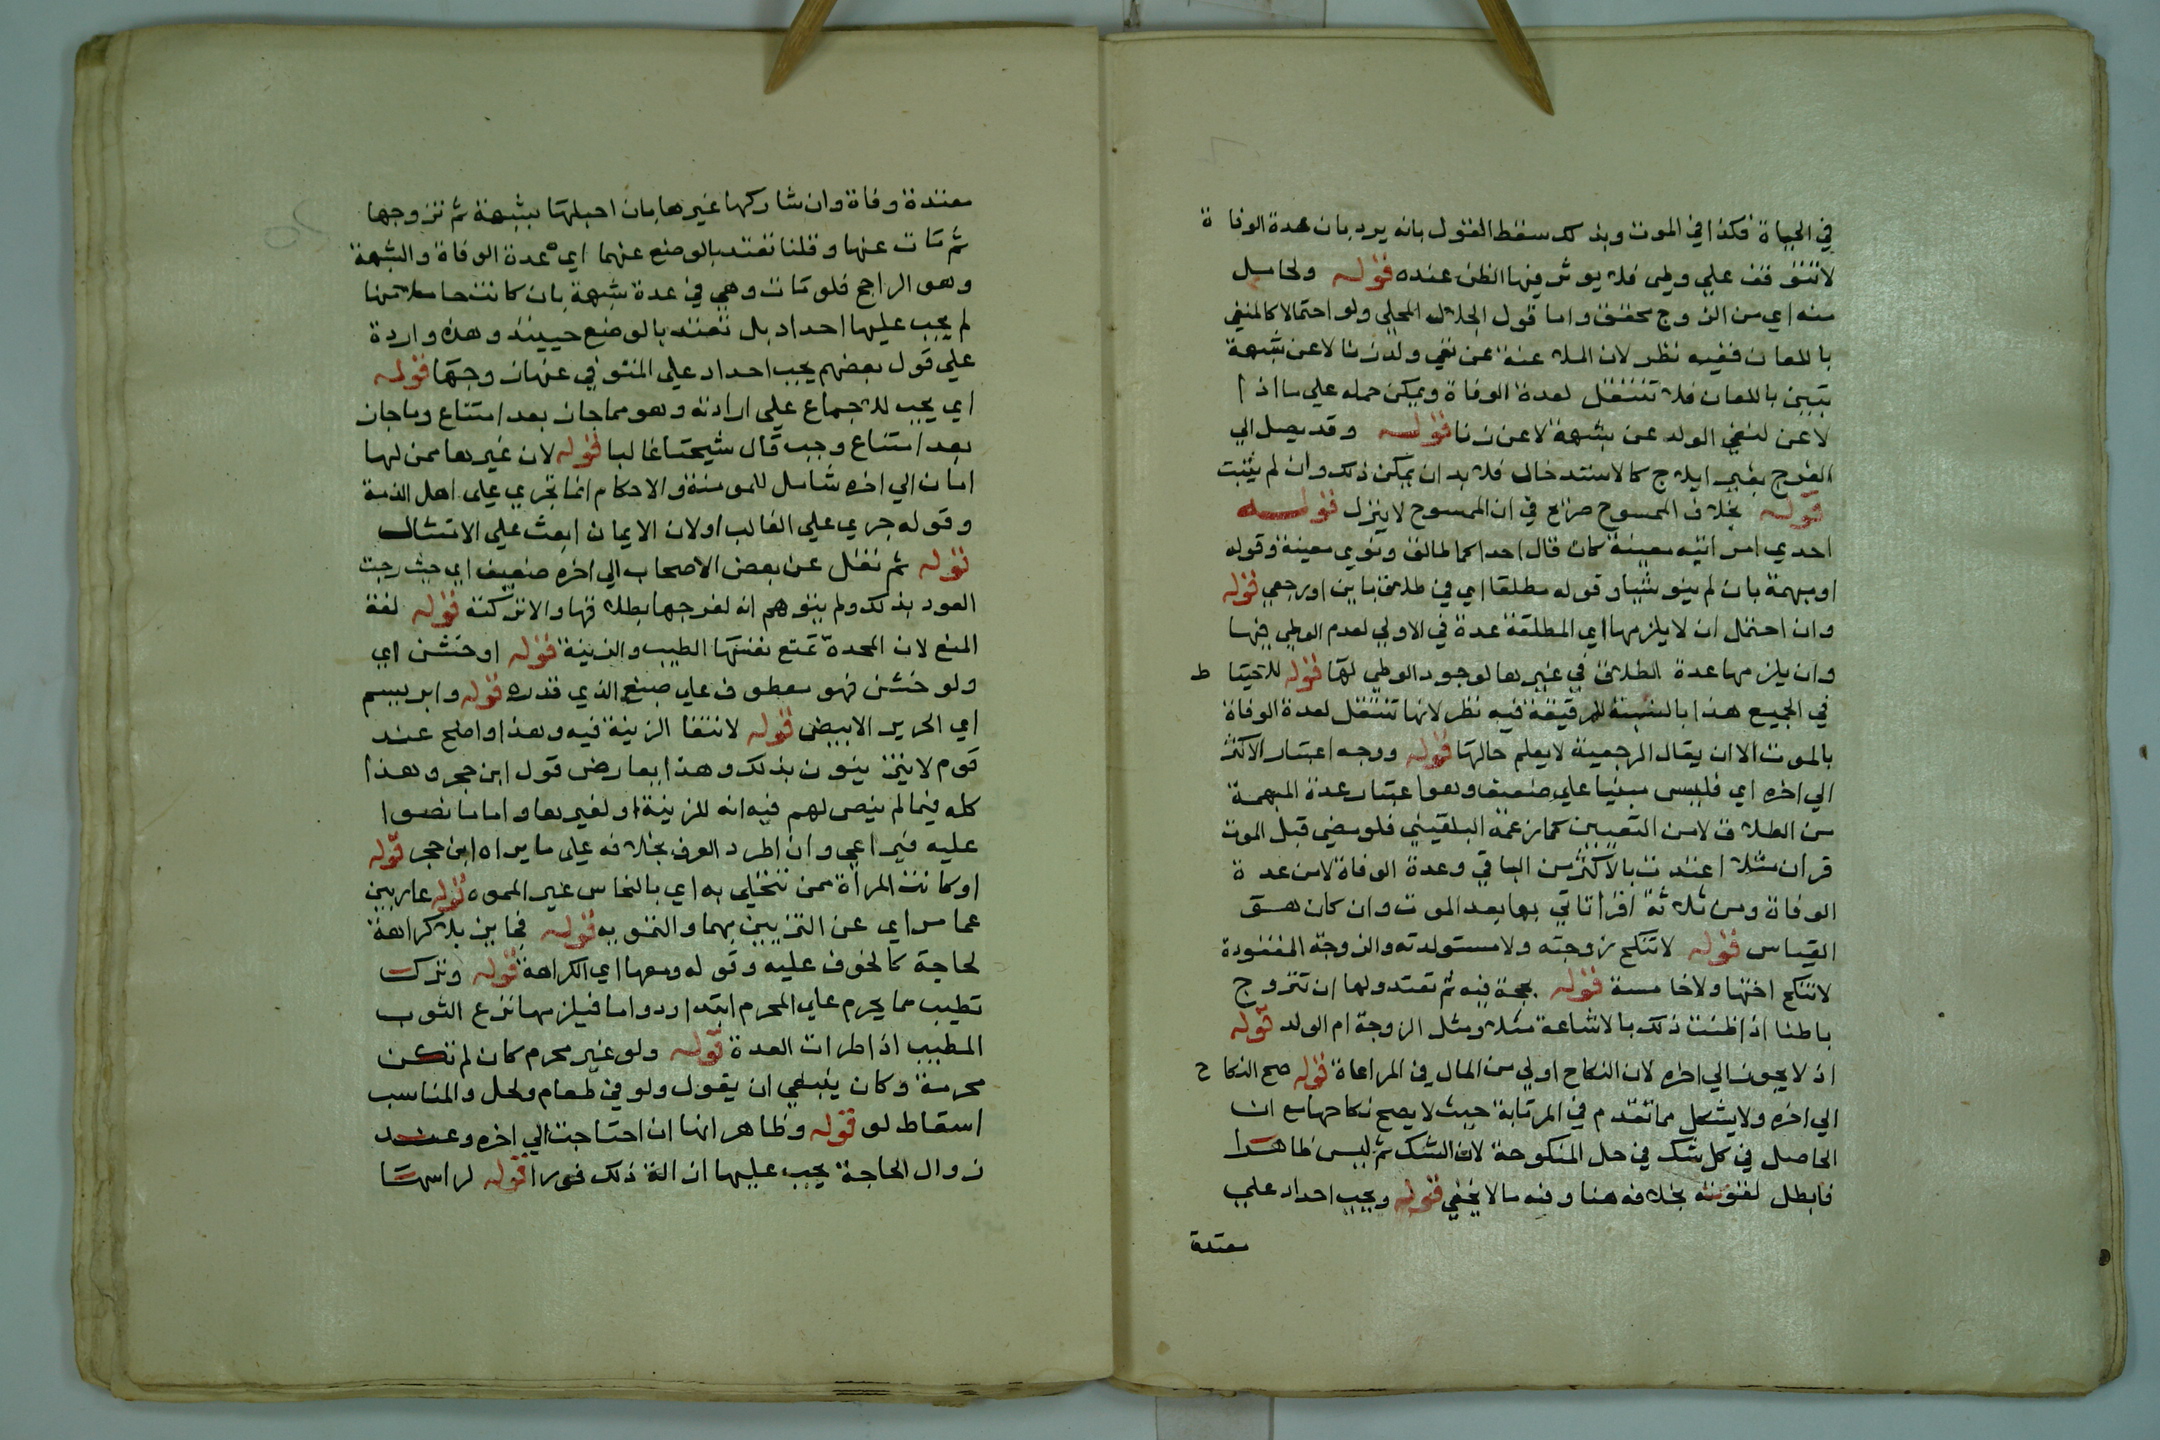 في الحياة فكذا في الموت وبذلك سقط القول بانه يرد بان عدة الوفاة
لا تتوقف علي وطي فلا يوثر فيها الظن عنده قوله ولحاصل
منه اي من الزوج محقق واما قول الجلال المحلي ولو احتمالا كالمنفي
باللعان ففيه نظر لان الملاعنة عن نفي ولد زنا لا عن شبهة
تبين باللعان فلا تنتقل لعدة الوفاة ويمكن حمله علي ما اذا
لاعن لنفي الولد عن شبهة لا عن زنا قوله وقد يصل الي
الفرج بغير ايلاج كالاستدخال فلا بد ان يمكن ذلك وان لم يثبت
قوله بخلاف الممسوح صرايح في ان الممسوح لا ينزل قوله
احدي امراتيه معينة كان قال احداكما طالق ونوي معينة وقوله
او مبهمة بان لم ينو شيا وقوله مطلقا اي في طلاق باين او رجعي قوله
وان احتمل ان لا يلزمها اي المطلقة عدة في الاولي لعدم الوطي فيها
وان يلزمها عدة الطلاق في غيرها لوجود الوطي لها قوله للاحتياط
في الجميع هذا بالنسبة للرقيقة فيه نظر لانها تنتقل لعدة الوفاة
بالموت الا ان يقال الرجعية لا يعلم حالها قوله ووجه اعتبار الاكثر
الي اخره اي فليس مبنيا علي ضعيف وهو اعتبار عدة المبهمة
من الطلاق لا من التعيين كما زعمه البلقيني فلو مضي قبل الموت
قران مثلا اعتدت بالاكثر من الباقي وعدة الوفاة لا من عدة
الوفاة ومن ثلاثة اقرا تاتي بها بعد الموت وان كان هو
القياس قوله لا تنكح زوجته ولا مستولدته والزوجة المفقودة
لا تنكح اختها ولا خامسة قوله بحجة فيه ثم تعتد ولها ان تتزوج
باطنا اذا ظنت ذلك بالاشاعة مثلا ومثل الزوجة ام الولد قوله
اذ لا يجوز الي اخره لان النكاح اولي من المال في المراعاة قوله صح النكاح
الي اخره ولا يشكل مما تقدم في المرتابة حيث لا يصح نكاحها مع ان
الحاصل في كل شك في حل المنكوحة لان الشك ثم ليس ظاهرا
فابطل لقوته بخلافه هنا وفيه ما لا يخفي قوله ويجب احداد علي
معتدة
معتدة وفاة وان شاركها غيرها بان احبلها بشبهة ثم تزوجها
ثم مات عنها وقلنا تعتد بالوضع عنهما اي عدة الوفاة والشبهة
وهو الراجح فلو مات وهي في عدة شبهة بان كانت حاملا منها
لم يجب عليها احداد بل تعتد بالوضع حينئذ وهذه واردة
علي قول بعضهم يجب احداد علي المتوفي عنها زوجها قوله
اي يجب للاجماع علي ارادته وهو مما جاز بعد امتناع وما جاز
بعد امتناع وجب قال شيخنا غالبا قوله لان غيرها ممن لها
امان الي اخره شامل للمومنة والاحكام انما تجري علي اهل الذمة
وقوله جري علي الغالب او لان الايمان ابعث علي الامتثال
قوله ثم نقل عن بعض الاصحاب الي اخره ضعيف اي حيث رجت
العود بذلك ولم يتوهم انه لفرحها بطلاقها والا تركته قوله لغة
المنع لان المحدة تمنع نفسها الطيب والزينة قوله او خشن اي
ولو خشن فهو معطوف علي صبغ الذي قدره قوله وابريسم
اي الحرير الابيض قوله لانتفا الزينة فيه وهذا واضح عند
قوم لا يتزينون بذلك وهذا يعارض قول ابن حجر وهذا
كله فيما لم ينص لهم فيه انه للزينة او لغيرها واما ما نصوا
عليه فيراعي وان اطرد العرف بخلافه علي ما يراه ابن حجر قوله
او كانت المراة ممن تتحلي به اي بالنحاس غير المموه قوله عاريين
عما مر اي عن التزيين بهما والتمويه قوله فجايز بلا كراهة
لحاجة كالخوف عليه وقوله ومعها اي الكراهة قوله وترك
تطيب مما يحرم علي المحرم ابتداء ردوا ما فيلزمها نزع الثوب
المطيب اذا طرات العدة قوله ولو غير محرم كان لم تكن
محرمة وكان ينبغي ان يقول ولو في طعام ولحل والمناسب
اسقاط لو قوله وظاهر انها ان احتاجت الي اخره وعند
زوال الحاجة يجب عليها ازالة ذلك فورا قوله لراسها